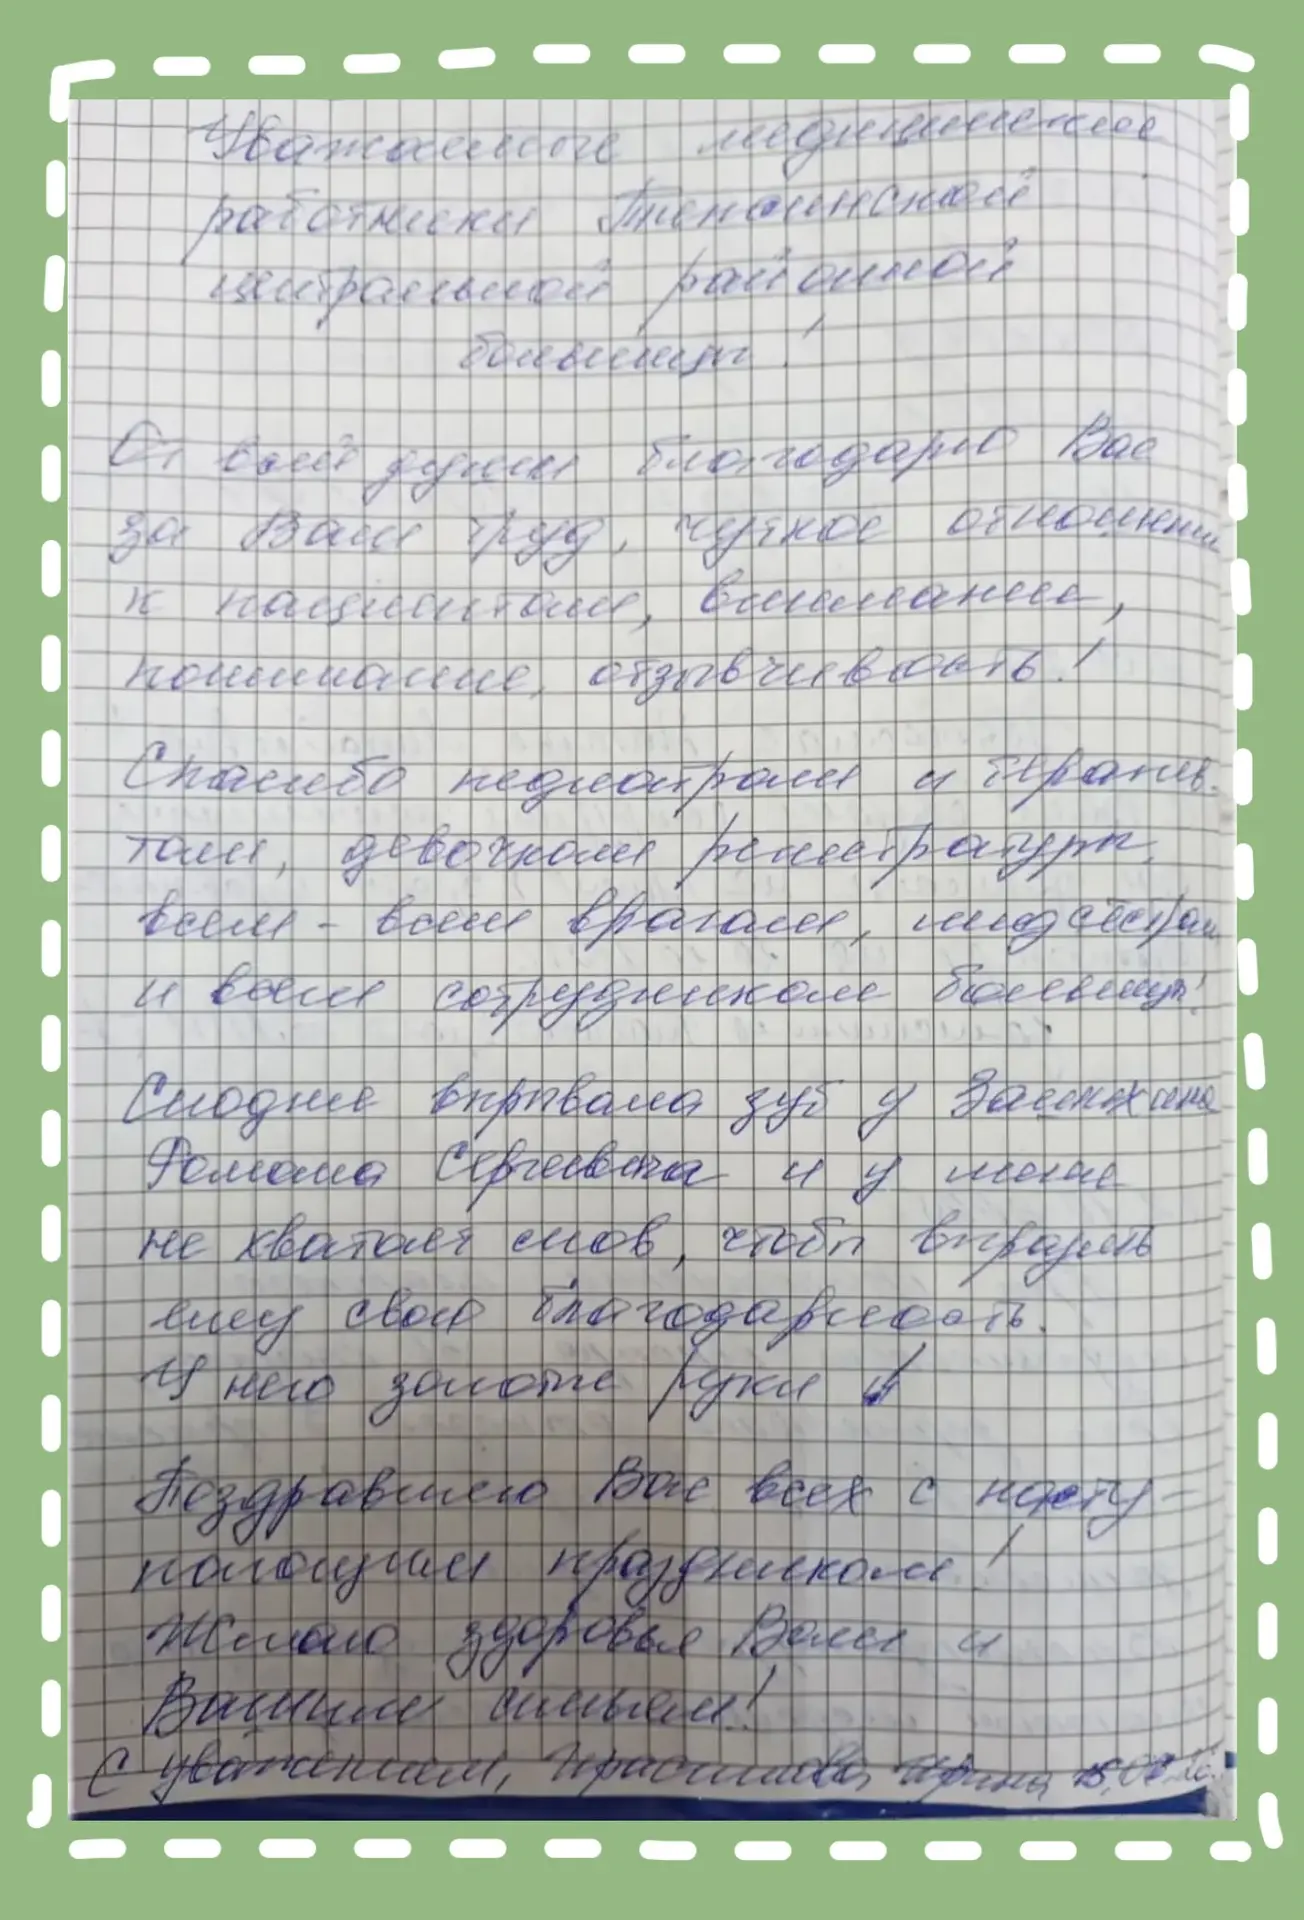 Уважаемые медицинские
работники Тепсинской
центральной районной
больницы!
От всей души благодарю Вас
за Ваш труд, чуткое отношение
к пациентам, внимание,
понимание, отзывчивость!
Спасибо педиатрам и терапев-
там, девочкам регистратуры,
всем-всем врачам, медсёстрам
и всем сотрудникам больницы!
Сегодня вырывала зуб у
Романа Сергеевича и у меня
не хватает слов, чтобы выразить
ему свою благодарность.
У него золотые руки
Поздравляю Вас всех с насту-
пающим праздником!
Желаю здоровья Вам и
Вашим семьям!
С уважением, Ирина